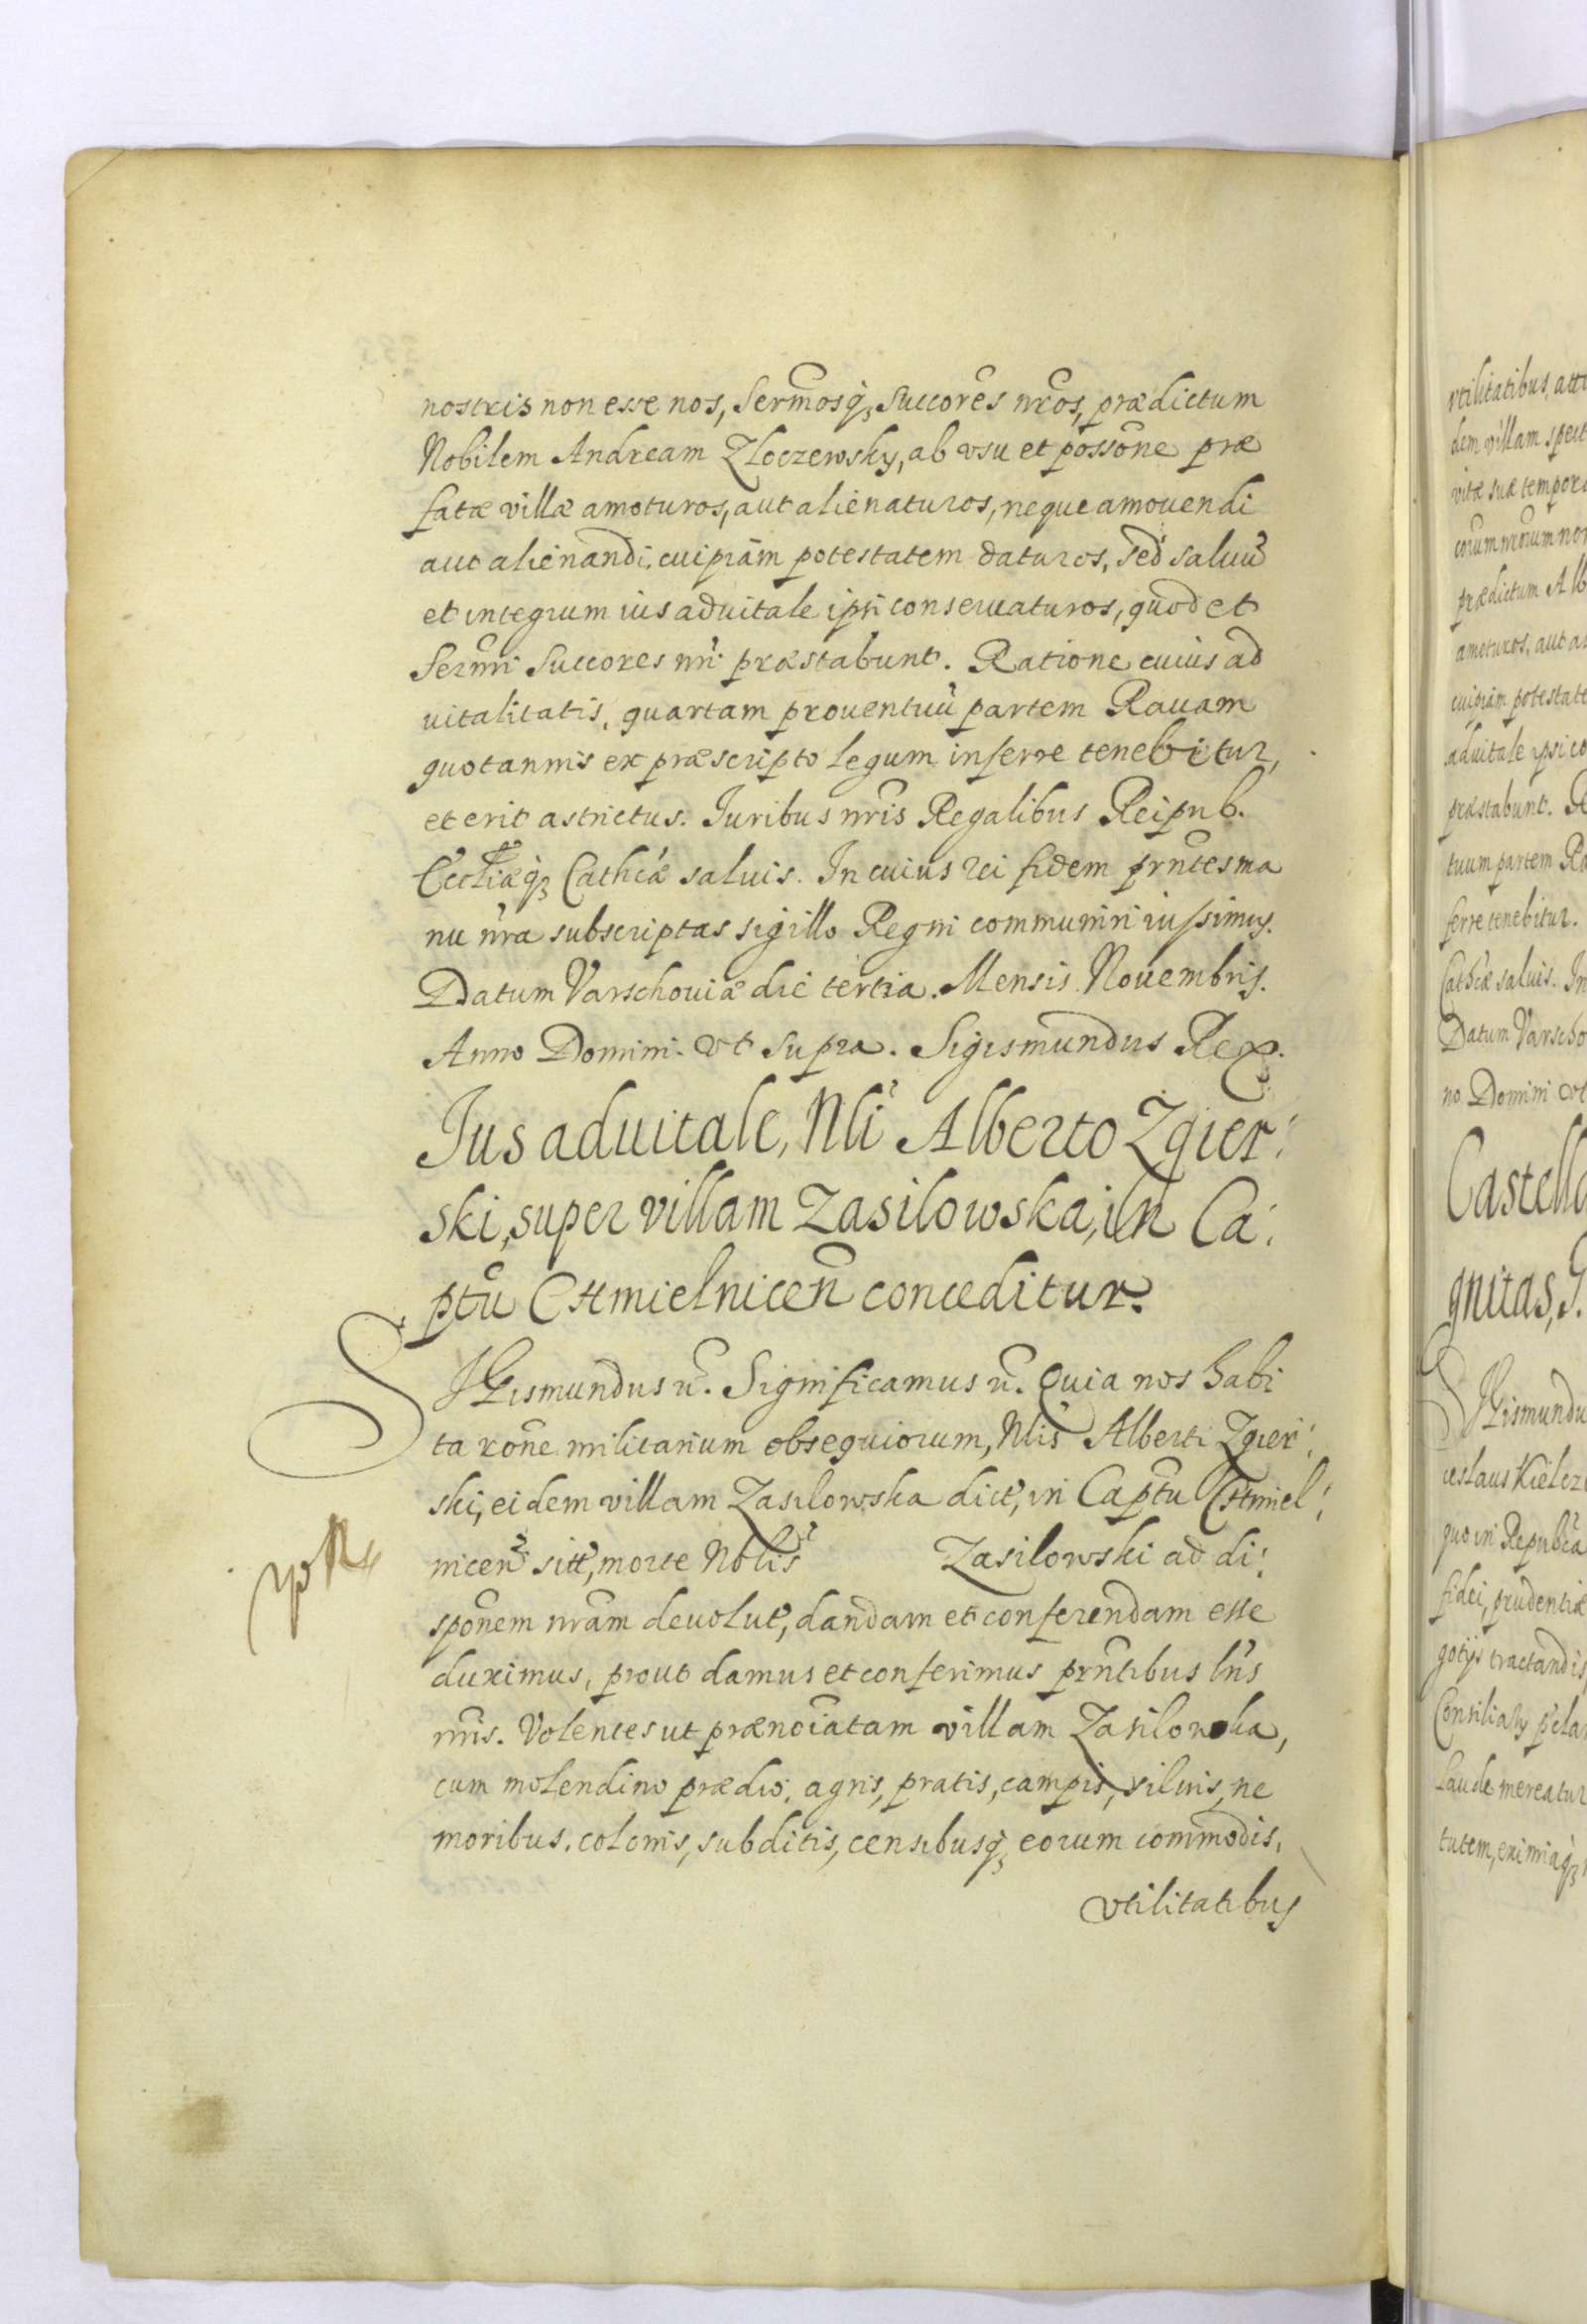 nostris non esse nos, Sermosq́ꝫ Succores nr̃os, prædictum
Nobilem Andream Zloczewsky, ab vsu et possõne præ
fatæ villæ amoturos, aut alienaturos, neque amouendi
aut alienandi, cuipiam potestatem daturos, sed saluũ
et integrum ius aduitale ipsi conseruaturos, quod et
Sermi Succores nri præstabunt. Ratione cuius ad
uitalitatis, quartam prouentuũ partem Rauam
quotannis ex præscripto legum inferre tenebitur,
et erit astrictus. Iuribus nris Regalibus Reipub.
Eccliæq́ꝫ Cathcæ saluis. In cuius rei fidem prntes ma
nu nra subscriptas sigillo Regni communiri iussimus.
Datum Varschouiæ die tertia. Mensis Nouembris.
Anno Domini. vt supra. Sigismundus Rex.
Ius aduitale, Nli Alberto Zgier:
ski, super villam Zasilowska, in Ca:
ptũ Chmielniceñ conceditur.
SIGismundus ẽ. Significamus ẽ. Quia nos habi
ta rõne militarium obsequiorum, Nlis Alberti Zgier:
ski, eidem villam Zasilowska dict, in Captu Chmiel:
niceñ sitt, morte Noblis Zasilowski ad di:
sponem nram deuolut, dandam et conferendam esse
duximus, prout damus et conferimus prntibus lris
nris. Volentes ut prænoiatam villam Zasilowska,
cum molendino prædio, agris, pratis, campis, siluis, ne
moribus, colonis, subditis, censibusq́ꝫ eorum commodis,
vtilitatibus
vtilitatibus, att
dem villam spect
vitæ suæ tempor
corum nrorum non
prædictum Alb
amoturos, aut a
cuipiam potestate
aduitale ipsi co
præstabunt. R
tuum partem Ra
ferre tenebitur.
Cathcæ saluis. In
Datum Varscho
no Domini vt
Castella
gnitas, G.
SIGismundu
ceslaus Kielcz
quo in Republca
fidei, prudentiæ
gotijs tractandis
laude mereatur
tutem, eximiaq́ꝫ